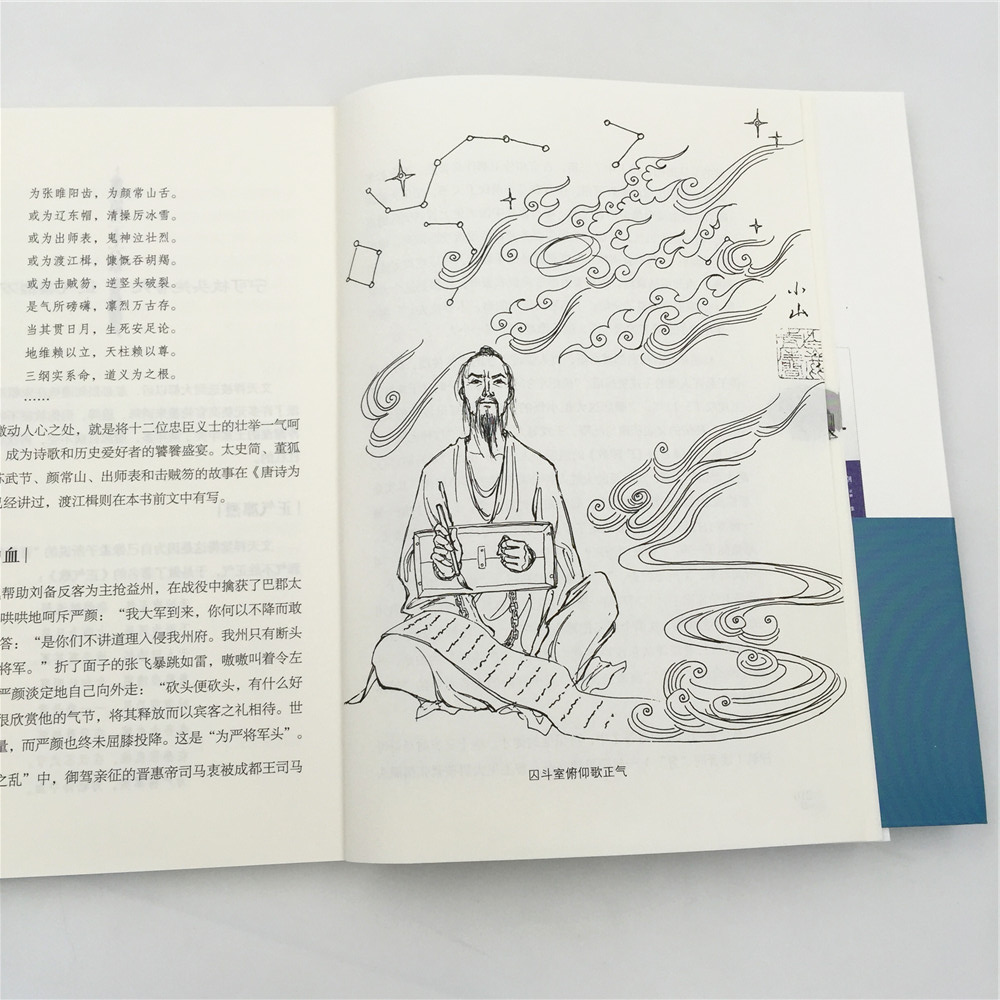 为张睢阳齿，为颜常山舌。
或为辽东帽，清操厉冰雪。
或为出师表，鬼神泣壮烈。
或为渡江楫，慷慨吞胡羯。
或为击贼笏，逆竖头破裂。
是气所磅礴，凛烈万古存。
当其贯日月，生死安足论。
地维赖以立，天柱赖以尊。
三纲实系命，道义为之根。
……
激动人心之处，就是将十二位忠臣义士的壮举一气呵
成为诗歌和历史爱好者的饕餮盛宴。太史简、董狐
苏武节、颜常山、出师表和击贼笏的故事在《唐诗为
已经讲过，渡江楫则在本书前文中有写。
血
帮助刘备反客为主抢益州，在战役中擒获了巴郡太
哄哄地呵斥严颜：“我大军到来，你何以不降而敢
答：“是你们不讲道理入侵我州府。我州只有断头
将军。”折了面子的张飞暴跳如雷，嗷嗷叫着令左
严颜淡定地自己向外走：“砍头便砍头，有什么好
很欣赏他的气节，将其释放而以宾客之礼相待。世
量，而严颜也终未屈膝投降。这是“为严将军头”。
之乱”中，御驾亲征的晋惠帝司马衷被成都王司马
小山
囚斗室俯仰歌正气